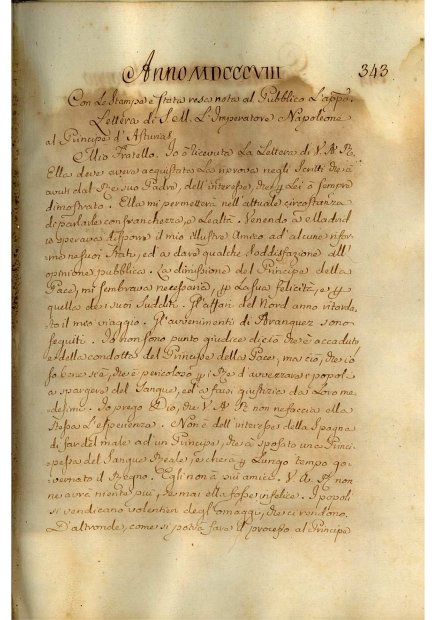 Anno MDCCCVIII 343
Con le Stampe è stata resa nota al Pubblico l'app.a
Lettera di S. e M. L'Imperatore Napoleone
al Principe d'Asturias
Mio Fratello. Io ò ricevuta la Lettera di V. A. R.
Ella deve avere acquistata la riprova negli Scritti che à
avuti dal Re suo Padre, dell'interesse, che p Lei ò sempre
dimostrato. Ella mi permetterà nell'attuale circostanza
di parlarle con franchezza, e Lealtà. Venendo a Madrid
io sperava disporre il mio illustre Amico ad alcune rifor
me ne suoi Stati, ed a dare qualche soddisfazione all'
opinione pubblica. La dimissione del Principe della
Pace, mi sembrava necessaria, p la sua felicità, e p
quella de i suoi Sudditi. Gl'affari del Nord anno ritarda
to il mio viaggio. Gl'avvenimenti di Aranguez sono
seguiti. Io non sono punto giudice di ciò che è accaduto
e della condotta del Principe della Pace, ma ciò, che io
so bene si è, che è pericoloso p i Re d'avvezzare i popoli
a spargere del Sangue, ed a farsi giustizia da Loro me
desimi. Io prego Dio, che V. A. R. non ne faccia ella
stessa l'esperienza. Non è dell'interesse della Spagna
di far del male ad un Principe, che à sposato una Princi
pessa del Sangue Reale, e che à p Lungo tempo go
vernato il Regno. Egli non à più amici. V. A. R. non
ne avrà niente più, se mai ella fosse infelice. I popoli
si vendicano volentieri degl'omaggi, che ci rendono.
D'altronde, come si potrà fare il processo al Principe